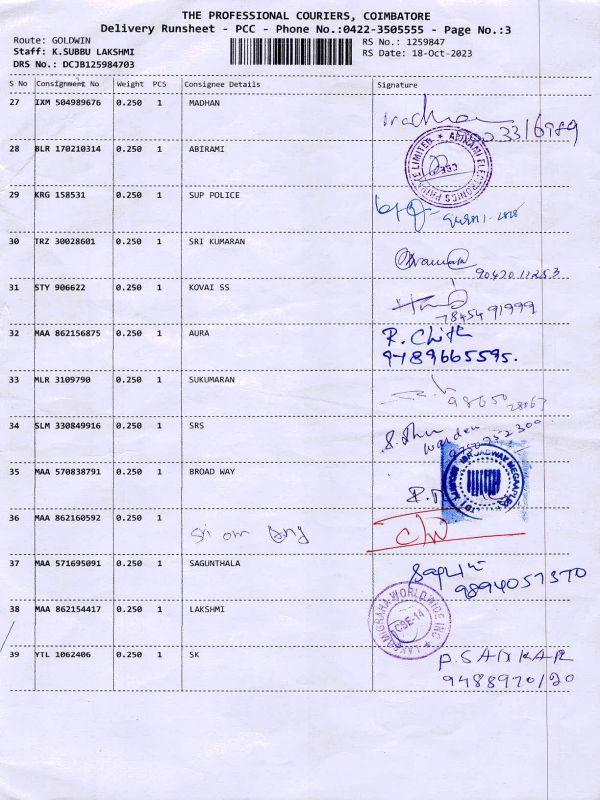 THE PROFESSIONAL COURIERS, COIMBATORE
Delivery Runsheet - PCC - Phone No.:0422-3505555 - Page No.:3
Route: GOLDWIN
Staff: K.SUBBU LAKSHMI
DRS No.: DCJB125984703
RS No.: 1259847
RS Date: 18-Oct-2023
S No Consignment No Weight PCS Consignee Details Signature
27 IXM 504989676 0.250 1 MADHAN
28 BLR 170210314 0.250 1 ABIRAMI
ABIRAMI ELECTRONICS PRIVATE LIMITED
29 KRG 158531 0.250 1 SUP POLICE
30 TRZ 30028601 0.250 1 SRI KUMARAN
90420 11253
31 STY 906622 0.250 1 KOVAI SS
78454 91999
32 MAA 862156875 0.250 1 AURA
R. Chith
9489665595.
33 MLR 3109790 0.250 1 SUKUMARAN
98650
34 SLM 330849916 0.250 1 SRS
35 MAA 570838791 0.250 1 BROAD WAY
BROADWAY MEGAPLEX
36 MAA 862160592 0.250 1 Sri om
37 MAA 571695091 0.250 1 SAGUNTHALA
9894057370
38 MAA 862154417 0.250 1 LAKSHMI
WORLDWIDE INC
CBE-14
39 YTL 1062406 0.250 1 SK
P. SANKAR
9488970120